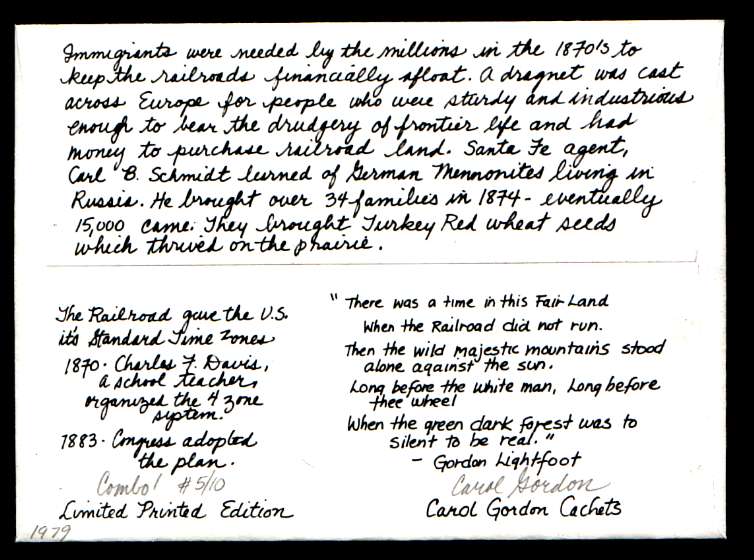 Immigrants were needed by the millions in the 1870's to
keep the railroads financially afloat. A dragnet was cast
across Europe for people who were sturdy and industrious
enough to bear the drudgery of frontier life and had
money to purchase railroad land. Santa Fe agent,
Carl B. Schmidt learned of German Mennonites living in
Russia. He brought over 34 families in 1874 - eventually
15,000 came. They brought Turkey Red wheat seeds
which thrived on the prairie.
The Railroad gave the U.S.
it's Standard Time Zones
1870 - Charles F. Davis,
a school teacher,
organized the 4 zone
system.
1883 - Congress adopted
the plan.
Combo! #5/10
Limited Printed Edition
1979
"There was a time in this Fair Land
When the Railroad did not run.
Then the wild majestic mountains stood
alone against the sun.
Long before the white man, Long before
thee wheel
When the green dark forest was to
silent to be real."
- Gordon Lightfoot
Carol Gordon
Carol Gordon Cachets